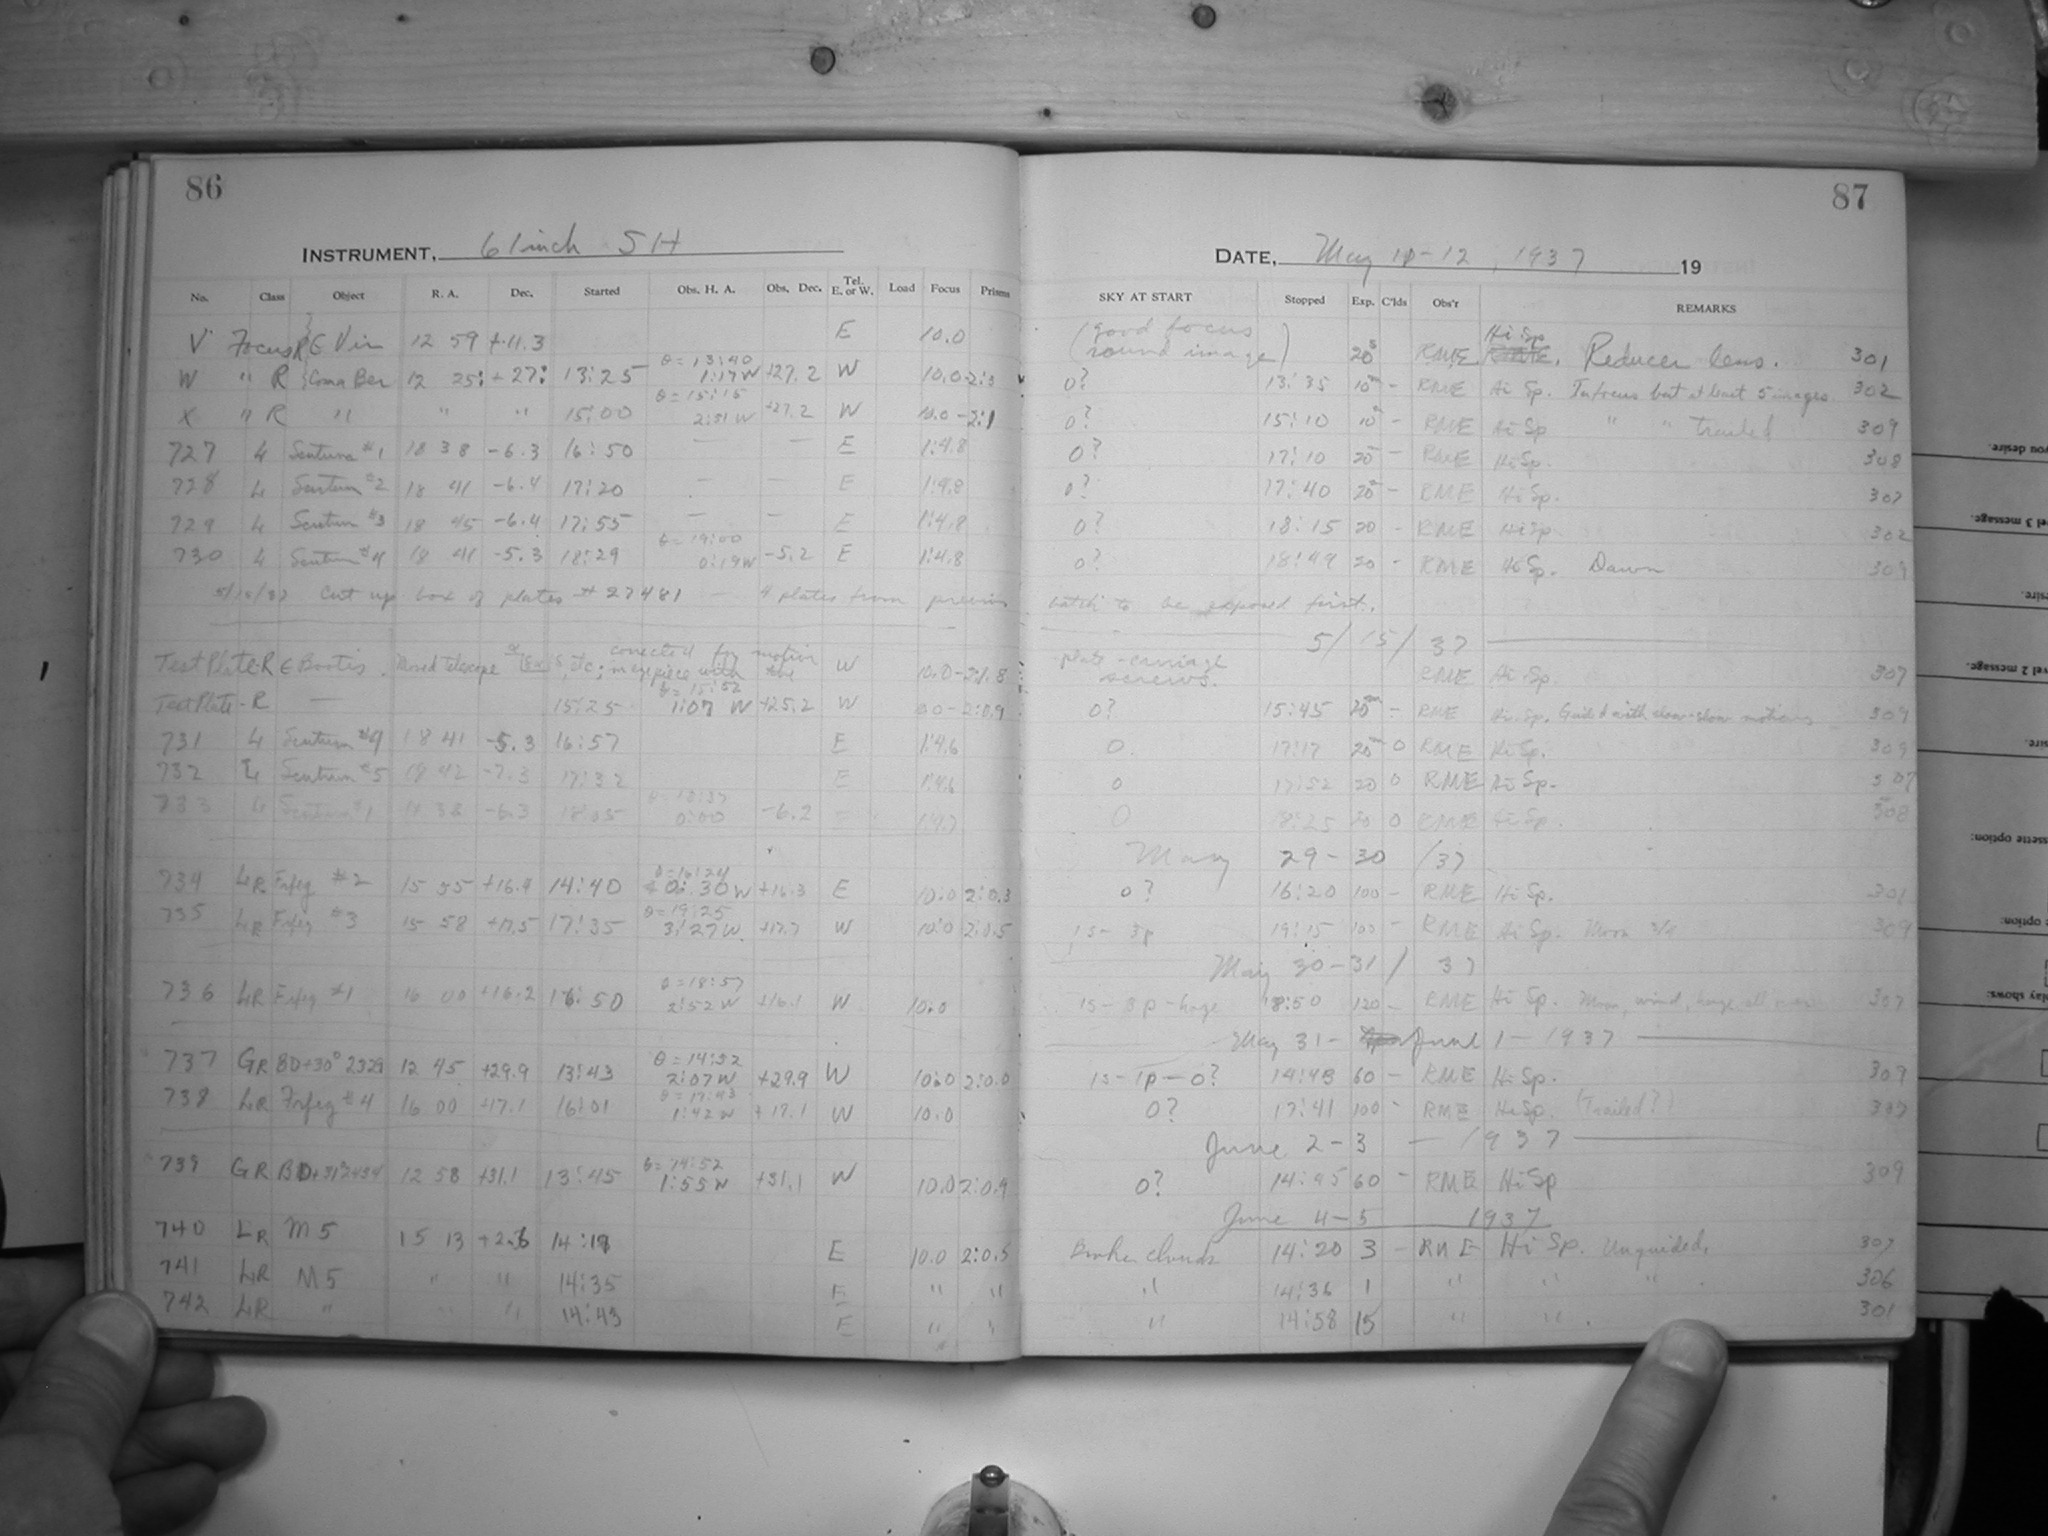 86
INSTRUMENT, 61 inch SH
No. Class Object R. A. Dec. Started Obs. H. A. Obs. Dec. Tel. E. or W. Load Focus Prisms
V Focus R ε Vir 12 59 +11.3 E 10.0
θ = 13:40
W " R Coma Ber 12 25: +27: 13:25 1:17 W +27.2 W 10.0-2:3
θ = 15:15
X " R " " " 15:00 2:51 W +27.2 W 10.0-2:1
727 L Scutum #1 18 38 -6.3 16:50 — — E 1:4.8
728 L Scutum #2 18 41 -6.4 17:20 — — E 1:4.8
729 L Scutum #3 18 45 -6.4 17:55 — — E 1:4.8
θ = 19:00
730 L Scutum #4 18 41 -5.3 18:29 0:19 W -5.2 E 1:4.8
Cut up box of plates # 27481 — 4 plates from previous
Test Plate-R ε Bootis. Moved telescope etc; corrected for motion in eyepiece with the W 10.0-2:1.8
θ = 15:52
Test Plate - R — 15:25 1:07 W +25.2 W 2:0.9
731 L Scutum #4 18 41 -5.3 16:57 E 1:4.6
732 L Scutum #5 18 42 -7.3 17:32 E 1:4.6
733 L Scutum #1 18 38 -6.3 18:05 0:00 -6.2 1:4.7
734 LR #2 15 55 +16.4 14:40 0:30 W +16.3 E 10.0 2:0.3
θ = 19:25
735 LR #3 15 58 +17.5 17:35 3:27 W +17.7 W 10.0 2:0.5
θ = 18:57
736 LR #1 16 00 +16.2 16:50 2:52 W +16.1 W 10.0
θ = 14:52
737 GR BD+30° 2329 12 45 +29.9 13:43 2:07 W +29.9 W 10.0 2:0.0
θ = 17:43
738 LR #4 16 00 +17.1 16:01 1:42 W +17.1 W 10.0
θ = 14:52
739 GR BD+31°2434 12 58 +31.1 13:45 1:55 W +31.1 W 10.0 2:0.9
740 LR M 5 15 13 14:17 E 10.0 2:0.5
741 LR M 5 " " 14:35 E " "
742 LR " " " 14:43 E " "
87
DATE, May 10-12, 1937 19
SKY AT START Stopped Exp. C'lds Obs'r REMARKS
(good focus round image) 20s RME Hi Sp. Reducer lens. 301
0? 13:35 10m - RME Hi Sp. In focus but at least 5 images. 302
0? 15:10 10m - RME Hi Sp " " trailed 309
0? 17:10 20 - RME Hi Sp. 308
0? 17:40 20 - RME Hi Sp. 307
0? 18:15 20 - RME Hi Sp. 302
0? 18:49 20 - RME Hi Sp. Dawn 309
batch to be exposed first.
5/15/37
plate-carriage screws. RME Hi Sp. 307
0? 15:45 20m - RME Hi Sp. Guided with slow-slow motions 309
0. 17:17 20m 0 RME Hi Sp. 309
0 17:52 20 0 RME Hi Sp. 307
0 18:25 20 0 RME Hi Sp. 308
May 29-30 /37
0? 16:20 100 - RME Hi Sp. 301
1s-3p 19:15 100 - RME Hi Sp. Moon 3/4 309
May 30-31/ 37
1s-3p-haze 18:50 120 - RME Hi Sp. Moon, wind, haze all over 307
May 31- June 1- 1937
1s-1p-0? 14:43 60 - RME Hi Sp. 309
0? 17:41 100 - RME Hi Sp. (Trailed?) 307
June 2-3 - 1937
0? 14:45 60 - RME Hi Sp 309
June 4-5 1937
Broken clouds 14:20 3 - RME Hi Sp. Unguided. 307
" 14:36 1 " " " 306
" 14:58 15 " " 301
you desire.
vel 3 message.
vel 2 message.